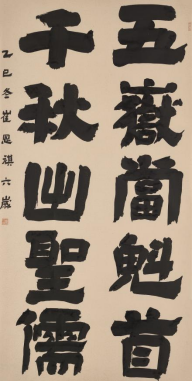 五嶽當魁首
千秋出聖儒
乙巳冬崔恩祺六歲